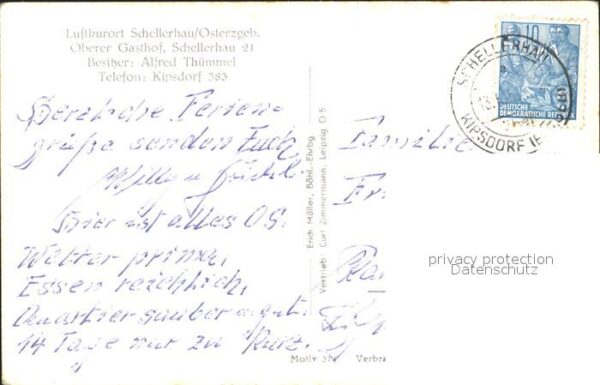 Luftkurort Schellerhau/Osterzgeb.
Oberer Gasthof, Schellerhau 21
Besitzer: Alfred Thümmel
Telefon: Kipsdorf 383
Herzliche Ferien-
grüße senden Euch
Willy u.
Hier ist alles OS.
Wetter prima,
Essen reichlich,
Quartier sauber u. gut.
14 Tage nur zu kurz.
Erich Müller, Böhl.-Ehrbg.
Vertrieb: Curt Zimmermann, Leipzig O 5
Motiv 371
Familie
Fr
SCHELLERHAU
KIPSDORF
10
DEUTSCHE
DEMOKRATISCHE REPUBLIK
privacy protection
Datenschutz